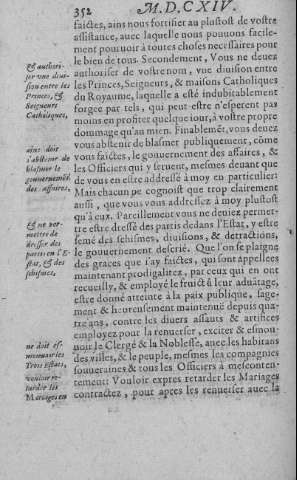 352
M. D C XIV.
faictes, ains nous fortifier au plustost de vostre
assistance, auec laquelle nous pouuons facile-
ment pouruoir à toutes choses necessaires pour
le bien de tous. Secondement, Vous ne deuez
authoriser de vostre nom, vne diuision entre
les Princes, Seigneurs, & maisons Catholiques
du Royaume, laquelle a esté indubitablement
forgee par tels, qui peut-estre n'esperent pas
moins en profiter quelque iour, à vostre propre
dommage qu'au mien. Finablemét, vous deuez
vous abstenir de blasmer publiquement, cōme
vous faictes, le gouuernement des affaires, &
les Officiers qui y seruent, mesmes deuant que
de vous en estre addressé à moy en particulier:
Mais chacun ne cognoist que trop clairement
aussi, que vous vous addressiez à moy plustost
qu'à eux. Pareillement vous ne deuiez permet-
tre estre dressé des partis dedans l'Estat, y estre
semé des schismes, diuisions, & detractions,
le gouuernement descrié. Que l'on se plaigne
des graces que i'ay faictes, qui sont appellees
maintenant prodigalitez, par ceux qui en ont
recueilly, & employé le fruict à leur aduātage,
estre donné atteinte à la paix publique, sage-
ment & heureusement maintenuë depuis qua-
tre ans, contre les diuers assauts & artifices
employez pour la renuerser, exciter & esmou-
uoir le Clergé & la Noblesse, auec les habitans
des villes, & le peuple, mesmes les compagnies
souueraines & tous les Officiers à mesconten-
tement: Vouloir expres retarder les Mariages
contractez, pour apres les renuerser auec la
Et authori-
ser vne diui-
sion entre les
Princes, &
Seigneurs
Catholiques,
ains doit
s'abstenir de
blasmer le
gouuernemēt
des affaires,
& ne per-
mettre de
dresser des
partis en l'E-
stat, & des
schismes,
ne doit es-
mouuoir les
Trois Estats,
vouloir re-
tarder les
Mariages en